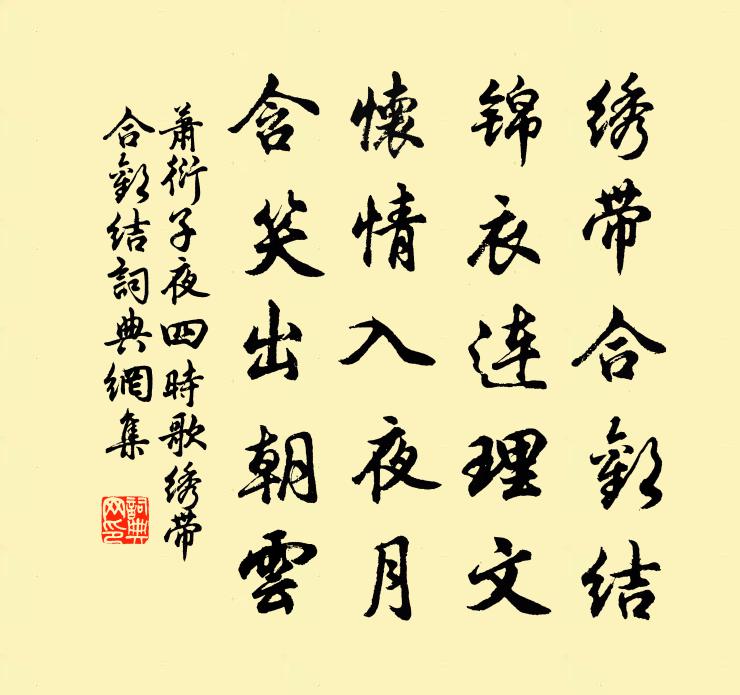 绣带合歡结
锦衣连理文
懷情入夜月
含笑出朝雲
萧衍子夜四時歌绣带
合歡结詞典網集
詞典
网印